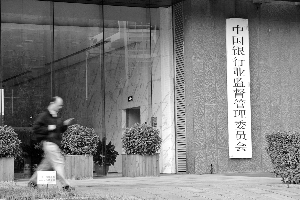 中国银行业监督管理委员会